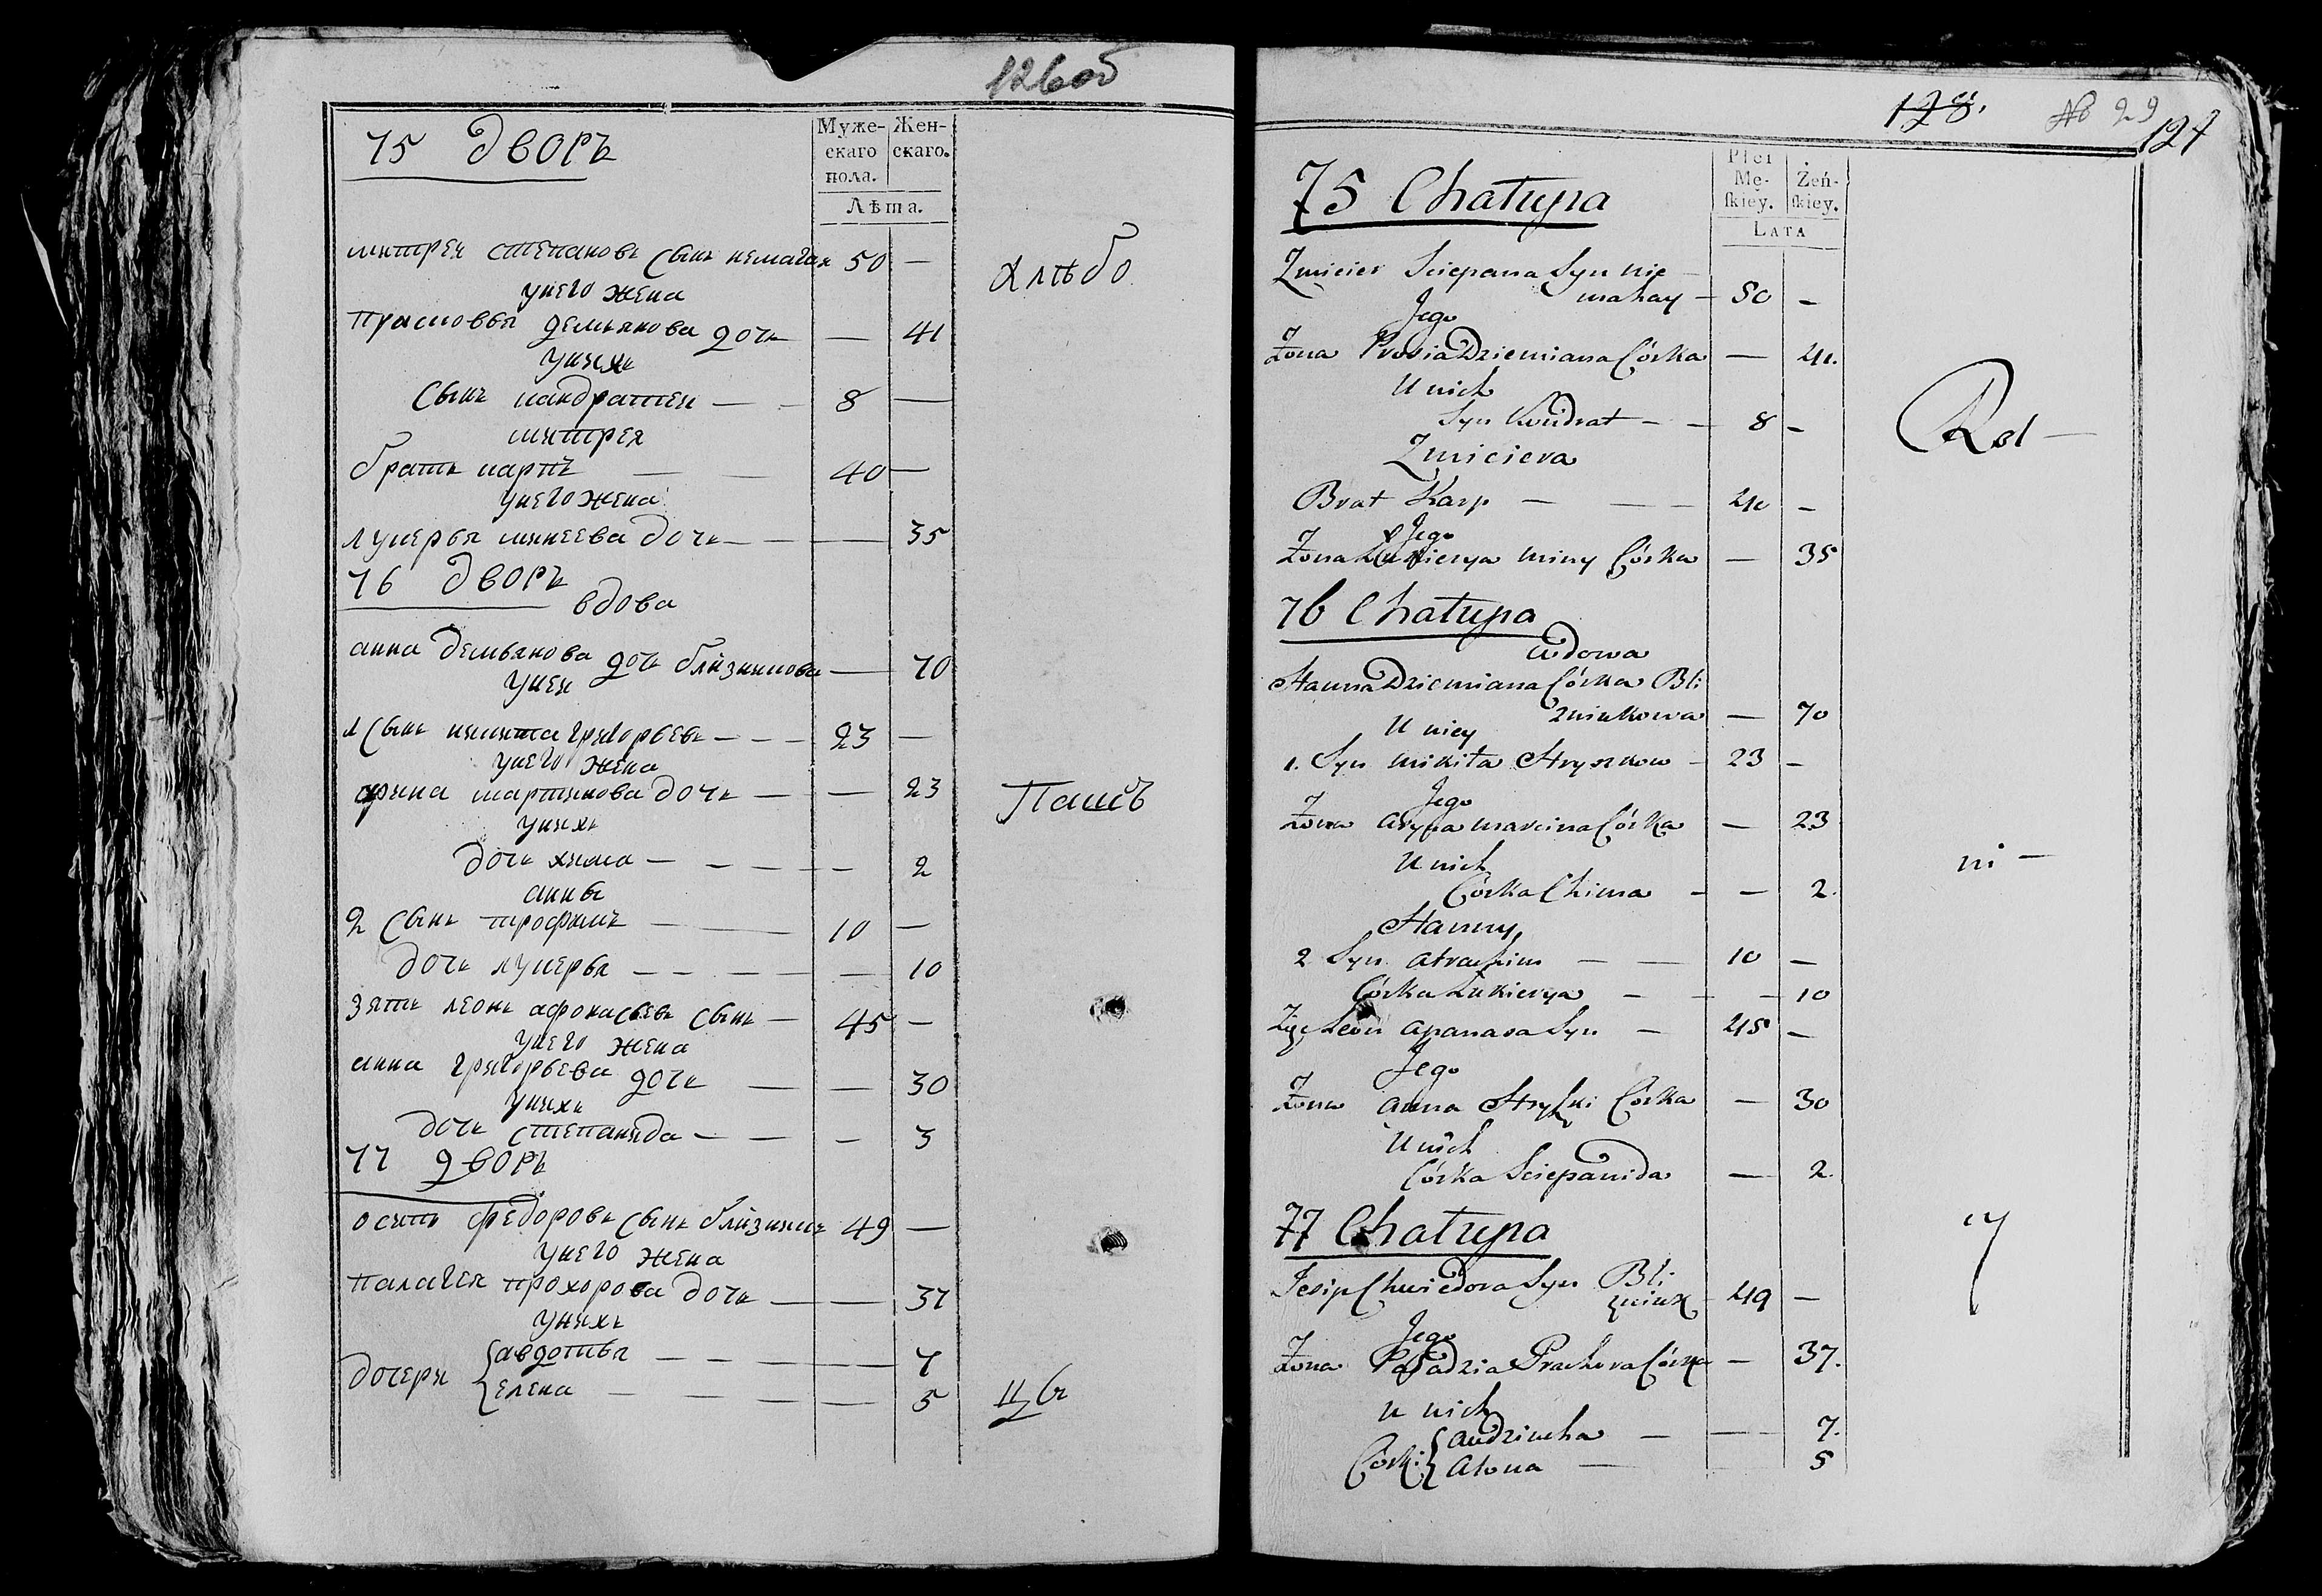 126об
75 дворъ
Муже-
скаго
пола.
Жен-
скаго.
Лѣта.
митрей степановъ сынъ немагай 50 —
унего жена
прасковья демьянова дочь — 41
унихъ
сынъ кандратей — — 8 —
митрея
братъ карпъ — — 40 —
унего жена
лукерья минеева дочь — — — 35
76 дворъ
вдова
анна демьянова дочь близникова — 70
уней
1 сынъ никита григорьевъ — — — 23 —
унего жена
арина мартинова дочь — — 23
унихъ
дочь хима — — — — 2
анны
2 сынъ трофимъ — — 10 —
дочь лукерья — — — — — 10
зять леонъ афонасьевъ сынъ — 45 —
унего жена
анна григорьева дочь — — 30
унихъ
дочь степанида — — — 3
77 дворъ
осипъ федоровъ сынъ близникъ 49 —
унего жена
палагея прохорова дочь — — 37
унихъ
дочери
авдотья — — — — 7
елена — — — 5
Пашъ
128.
№ 29
127
75 Chałupa
Płci
Mę-
skiey.
Żeń-
skiey.
LATA
Zmicier Sciepana Syn nie
mahay — 50 —
Jego
Żona Prosia Dziemiana Córka — 41.
U nich
Syn Kondrat — — 8 —
Zmiciera
Brat Karp — — — 40 —
Jego
Żona Łukierya Miny Córka — 35
76 Chałupa
wdowa
Hanna Dziemiana Córka Bli
znikowa — 70
U niey
1. Syn Mikita Hryszkow — 23 —
Jego
Żona Aryna Marcina Córka — 23
U nich
Córka Chima — — 2.
Hanny
2 Syn Atrachim — — 10 —
Córka Łukierya — — — 10
Zięć Leon Apanasa Syn — 45 —
Jego
Żona Anna Hryszki Córka — 30
U nich
Córka Sciepanida — 2.
77 Chałupa
Jesip Chwiedora Syn Bli
źniuk 49 —
Jego
Żona Paładzia Prachora Córka — 37.
U nich
Córki
Audziucha — — 7.
Alona — 5
ni —